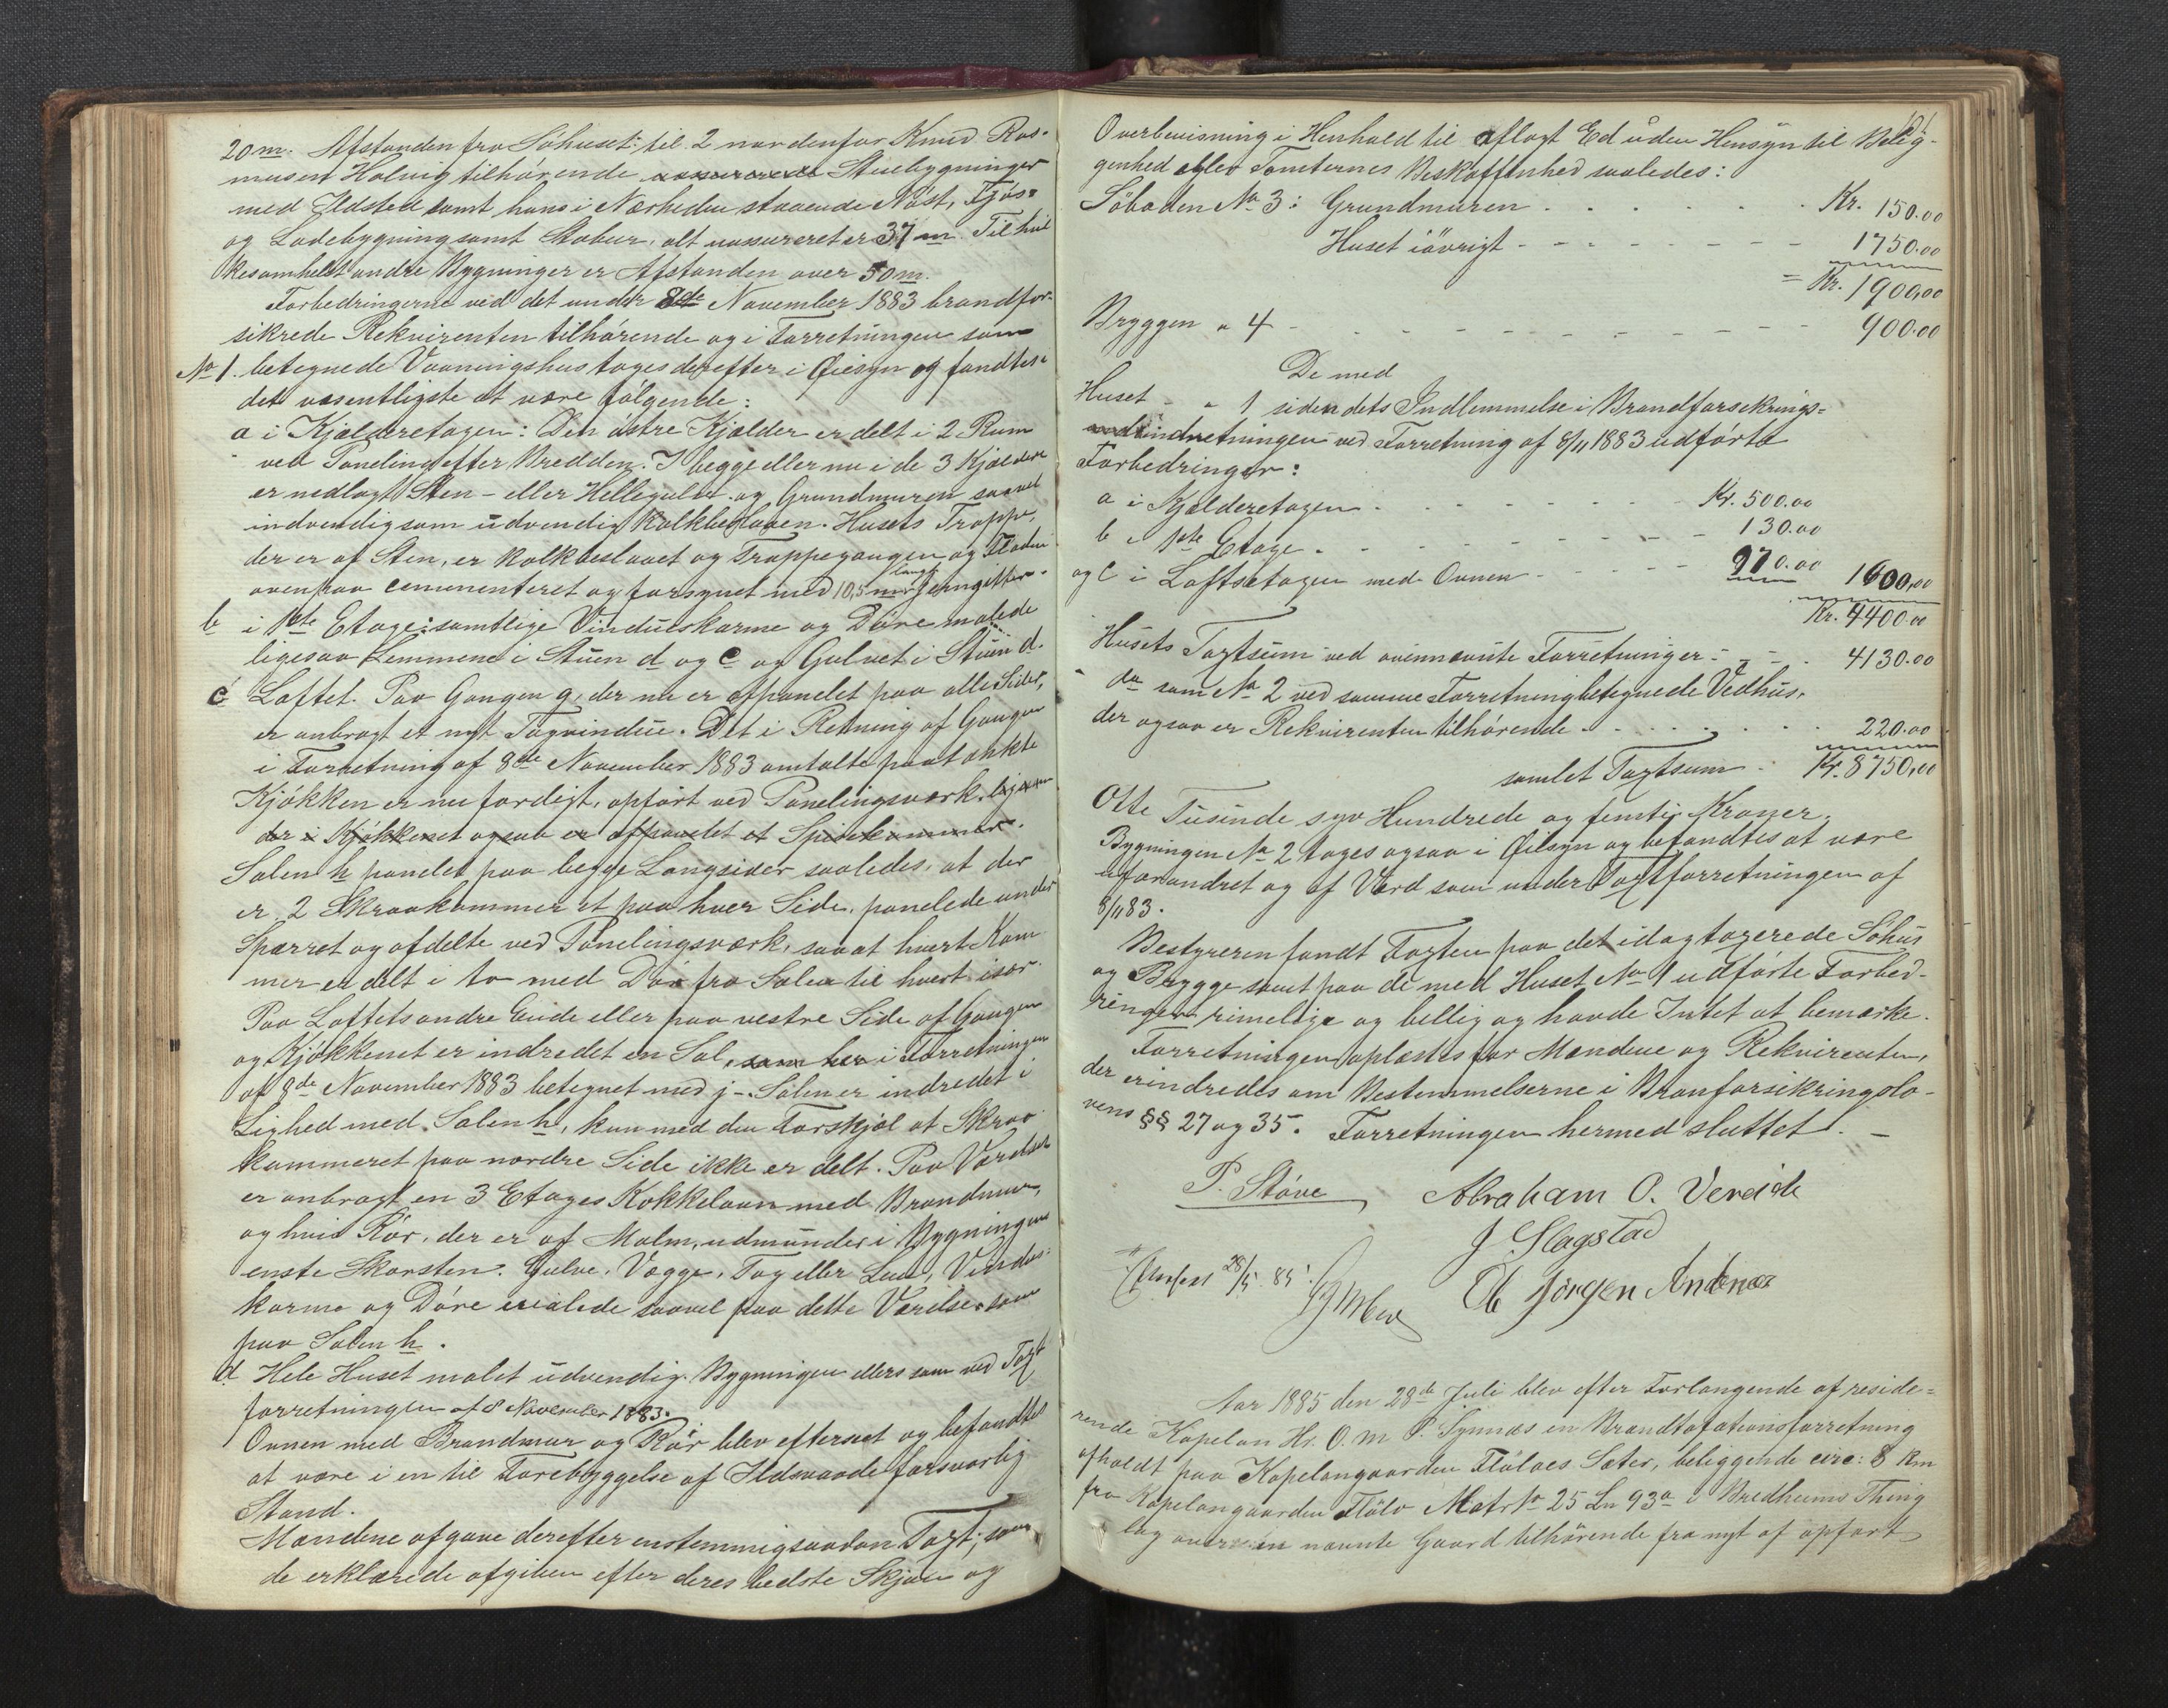 20 m. Afstanden fra Söhuset: til 2 nordenfor Knud Ras-
musen Holvig tilhörende assurerede Stuebygninger
med Ildsted samt hans i Nærheden staaende Nöst, Fjös-
og Ladebygning samt Stabur, alt uassureret er 37 m. Til hvil
kesomhelst andre Bygninger er Afstanden over 50 m.
Forbedringerne ved det under 8de November 1883 brandfor-
sikrede Rekvirenten tilhörende og i Forretningen som
No 1. betegnede Vaaningshus toges derefter i Øiesyn og fandtes
det væsentligste at være fölgende:
a i Kjælderetagen: Den östre Kjælder er delt i 2 Rum
ved Paneling efter Bredden. I begge eller nu i de 3 Kjældere
er nedlagt Sten- eller Hellegulv og Grundmuren saavel
indvendig som udvendig kalkbeslaaen. Husets Trappe,
der er af Sten, er kalkbeslaaet og Trappegangen og Fladen
ovenpaa cementeret og forsynet med 10,5 m langt Jerngitter.
b i 1ste Etage: samtlige Vindueskarme og Döre malede
ligesaa Lemmene i Stuen d og e og Gulvet i Stuen d.
c Loftet. Paa Gangen g, der nu er afpanelet paa alle Sider,
er anbragt et nyt Tagvindue. Det i Retning af Gangen
i Forretning af 8de November 1883 omtalte paatænkte
Kjökken er nu færdigt, opfört ved Panelingsværk, ligesom
der i Kjökkenet ogsaa er afpanelet et Spisekammer.
Salen h panelet paa begge Langsider saaledes, at der
er 2 Skraakammer et paa hver Side, panelede under
Sparret og afdelte ved Panelingsværk, saa at hvert Kam
mer er delt i to med Dör fra Salen til hvert især.
Paa Loftets andre Ende eller paa vestre Side af Gangen
og Kjökkenet er indredet en Sal, som her i Forretningen
af 8de November 1883 betegnet med j -. Salen er indredet i
Lighed med Salen h, kun med den Forskjel at Skraa
kammeret paa nordre Side ikke er delt. Paa Værelset
er anbragt en 3 Etages Kokkelovn med Brandmur,
og hvis Rör, der er af Malm, udmunder i Bygningens
eneste Skorsten. Gulve, Vægge, Tag eller Lem, Vindus-
karme og Döre ere malede saavel paa dette Værelse som
paa Salen h.
d Hele Huset malet udvendig. Bygningen ellers som ved Taxt
forretningen af 8 November 1883.
Ovnen med Brandmur og Rör blev efterseet og befandtes
at være i en til Forebyggelse af Ildsvaade forsvarlig
Stand.
Mændene afgave derefter enstemmig saadan Taxt, som
de erklærede afgiven efter deres bedste Skjön og
Overbevisning i Henhold til aflagt Ed uden Hensyn til Belig-
genhed eller Tomternes Beskaffenhed saaledes:
Söboden No 3: Grundmuren . . . . . Kr. 150.00
Huset iövrigt - - - - - - - 1750.00
= Kr. 1900,00
Bryggen " 4 - - - - - - - - - - 900.00
De med
Huset - " 1 siden dets Indlemmelse i Brandforsekrings-
indretningen ved Forretning af 8/11 1883 udförte
Forbedringer:
a i Kjælderetagen . . . . . . Kr. 500.00
b " 1ste Etage - - - - - - - 130.00
og c i Loftsetagen med Ovnen - - - - 970.00 1600,00
Kr. 4400.00
Husets Taxtsum ved ovennævnte Forretninger - - - 4130.00
do som No 2 ved samme Forretning betegnede Vedhus,
der ogsaa er Rekvirenten tilhörende . . . . . . . 220.00
samlet Taxtsum - Kr. 8750,00
Otte Tusinde syv Hundrede og femti Kroner.
Bygningen No 2 toges ogsaa i Øiesyn og befandtes at være
uforandret og af Værd som under Taxtforretningen af
8/11 83.
Bestyreren fandt Taxten paa det idag taxerede Söhus
og Brygge samt paa de med Huset No 1 udförte Forbed-
ringer rimelige og billig og havde Intet at bemærke.
Forretningen oplæstes for Mændene og Rekvirenten,
der erindredes om Bestemmelserne i Branforsikringslo-
vens §§ 27 og 35. Forretningen hermed sluttet. -
P. Stöve Abraham O. Vereide
J Slagstad
28/5 85. Jörgen Andenæs
Aar 1885 den 28de Juli blev efter Forlangende af reside-
rende Kapelan Hr. O. M. P. Synnæs en Brandtaxationsforretning
afholdt paa Kapelangaarden Flölaes Sæter, beliggende circ: 8 Km
fra Kapelangaarden Flölo Matr No 25 Ln 93a i Bredheims Thing
lag over en nævnte Gaard tilhörende fra nyt af opfört